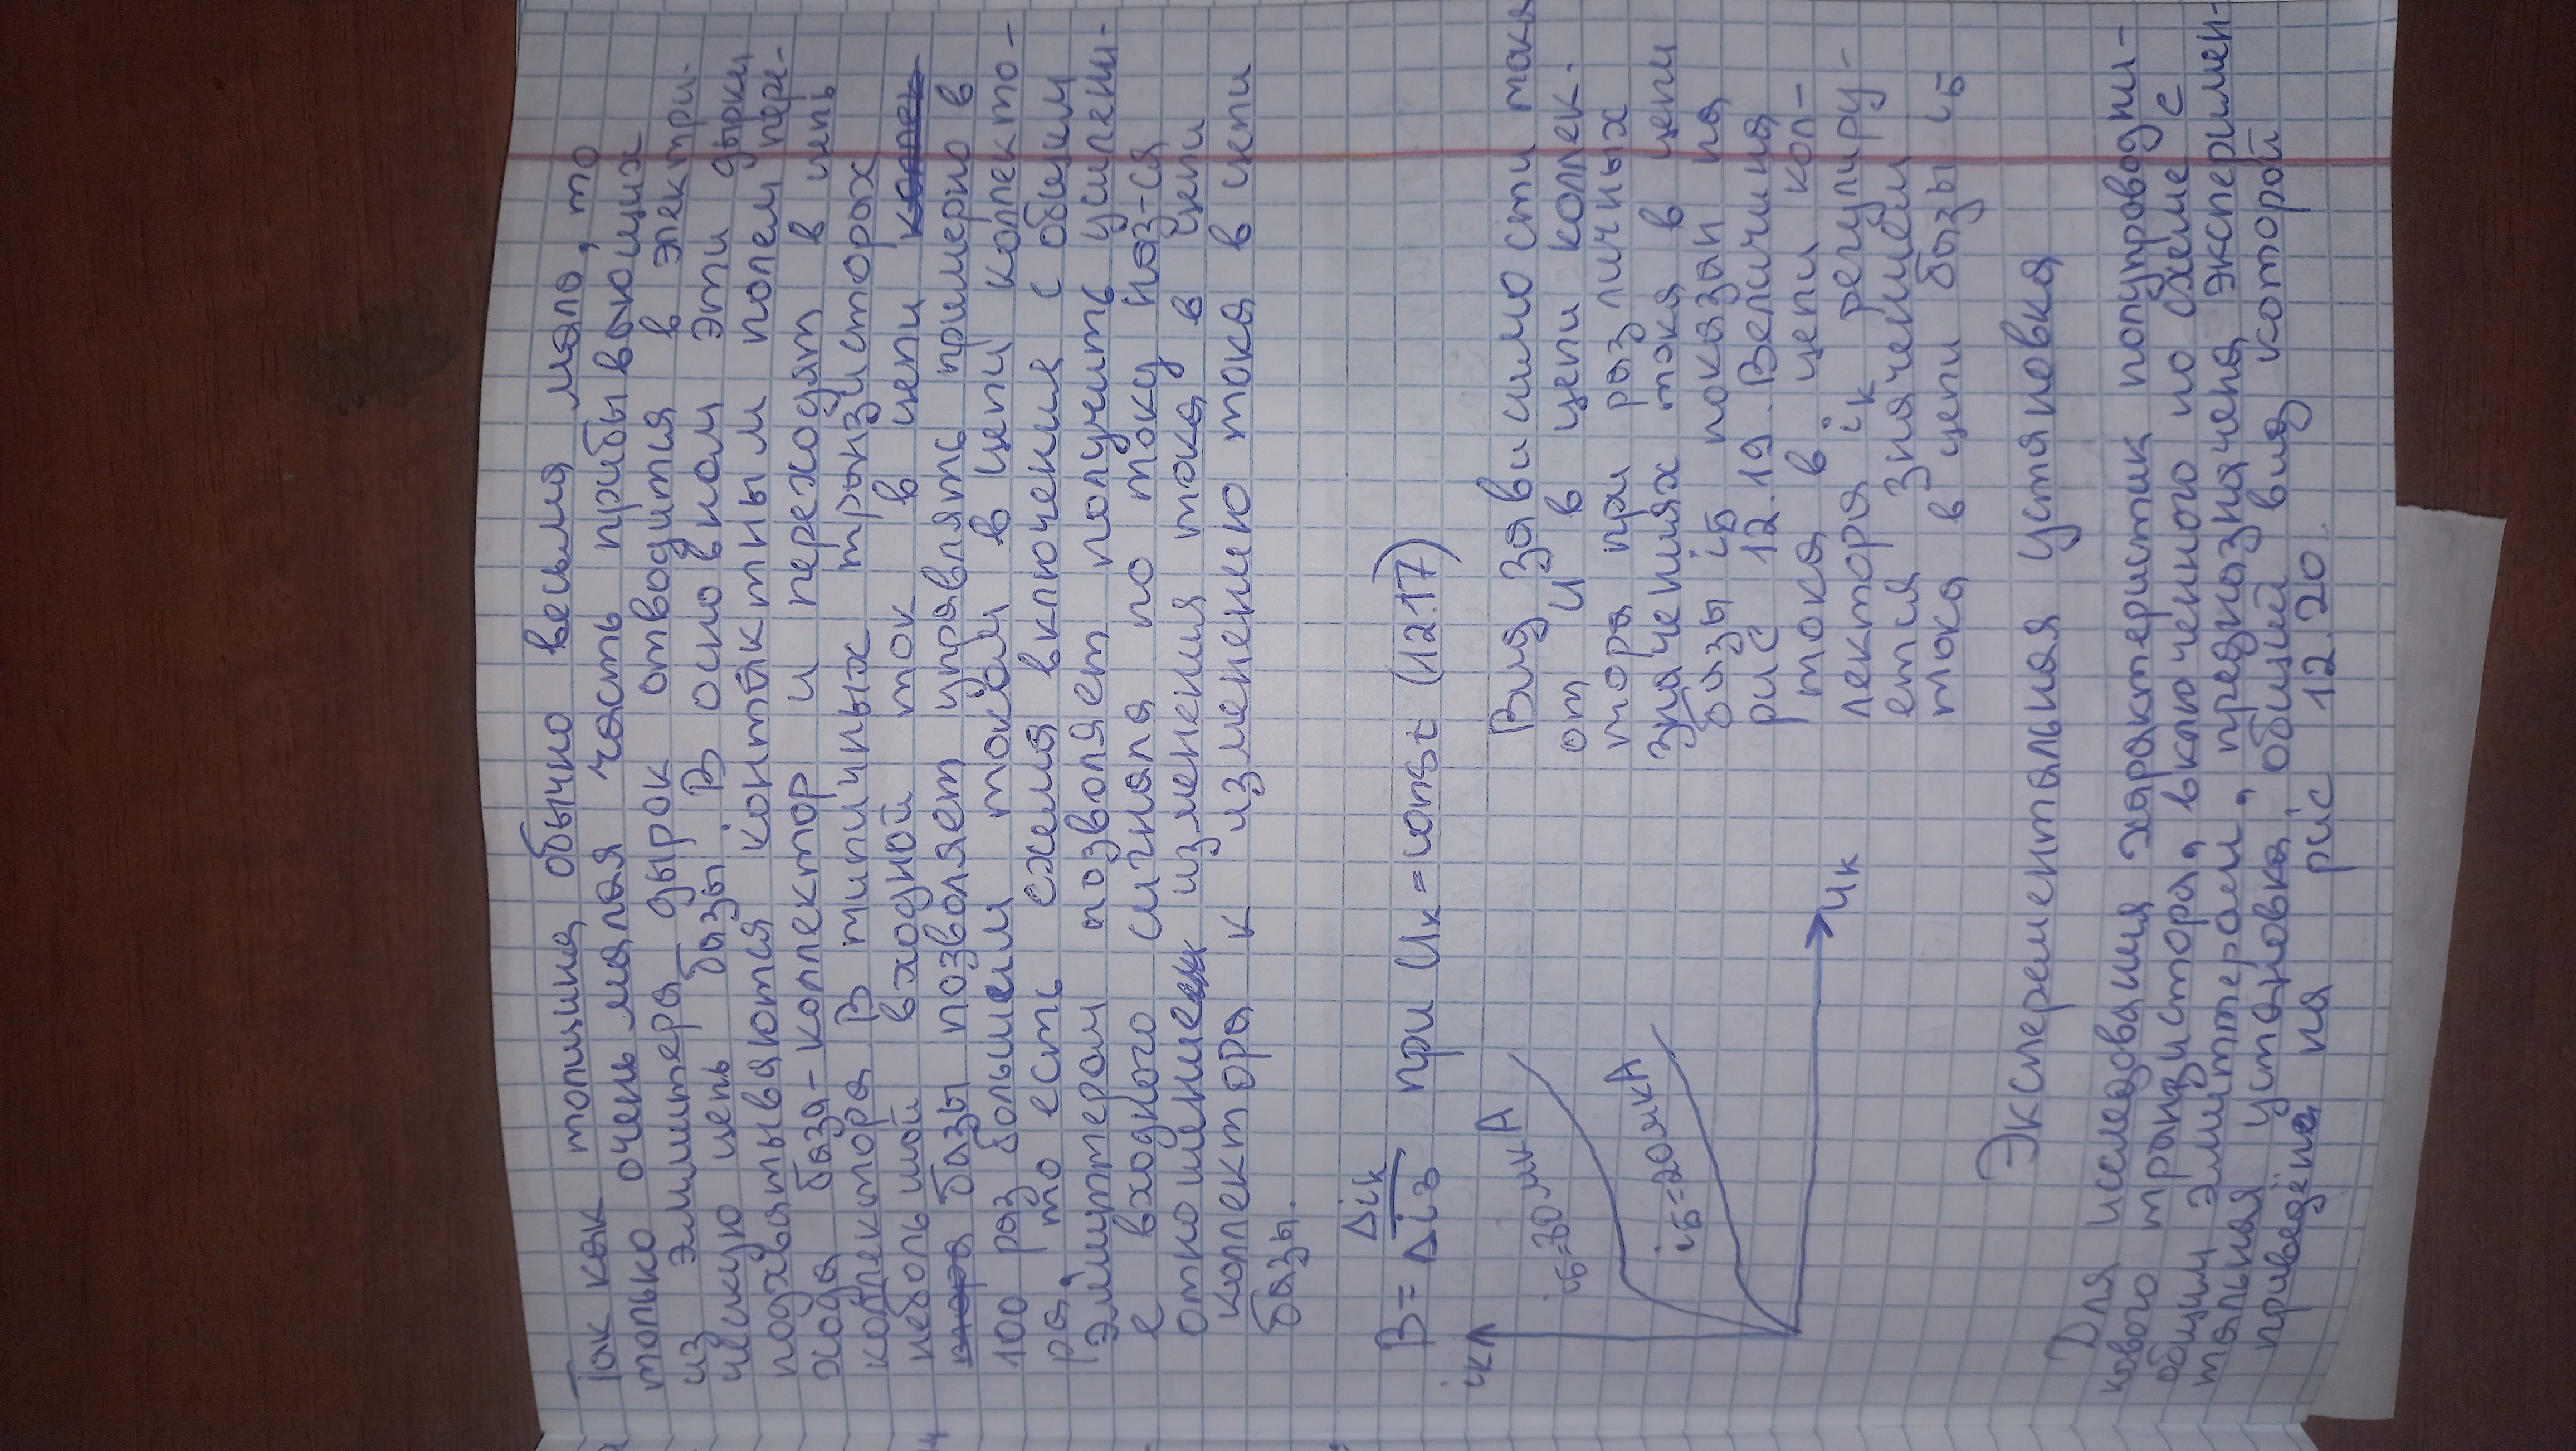 Так как толщина обычно весьма мала, то
только очень малая часть прибывающих
из эммитера дырок отводится в электри-
ческую цепь базы. В основном эти дырки
подхватываются контактным полем пере-
хода база-коллектор и переходят в цепь
коллектора. В типичных транзисторах
небольшой входной ток в цепи коллек
тора базы позволяет управлять примерно в
100 раз большим током в цепи коллекто-
ра, то есть схема включения с общим
эмиттером позволяет получить усилени-
е входного сигнала по току наз-ся
отношение изменения тока в цепи
коллектора к изменению тока в цепи
базы.
B = Δik / Δiз при Uк = const (12.17)
iк
iб=80мкА
iБ=20мкА
Uк
Вид зависимости тока
от U в цепи коллек-
тора при различных
значениях тока в цепи
базы iБ показан на
рис 12.19. Величина
тока в цепи кол-
лектора iк регулиру-
ется значением
тока в цепи базы iБ
Эксперементальная установка
Для исследования характеристик полупроводни-
кового транзистора, включенного по схеме с
общим эмиттером, предназначена эксперимен-
тальная установка, общий вид которой
приведёна на рис 12.20.